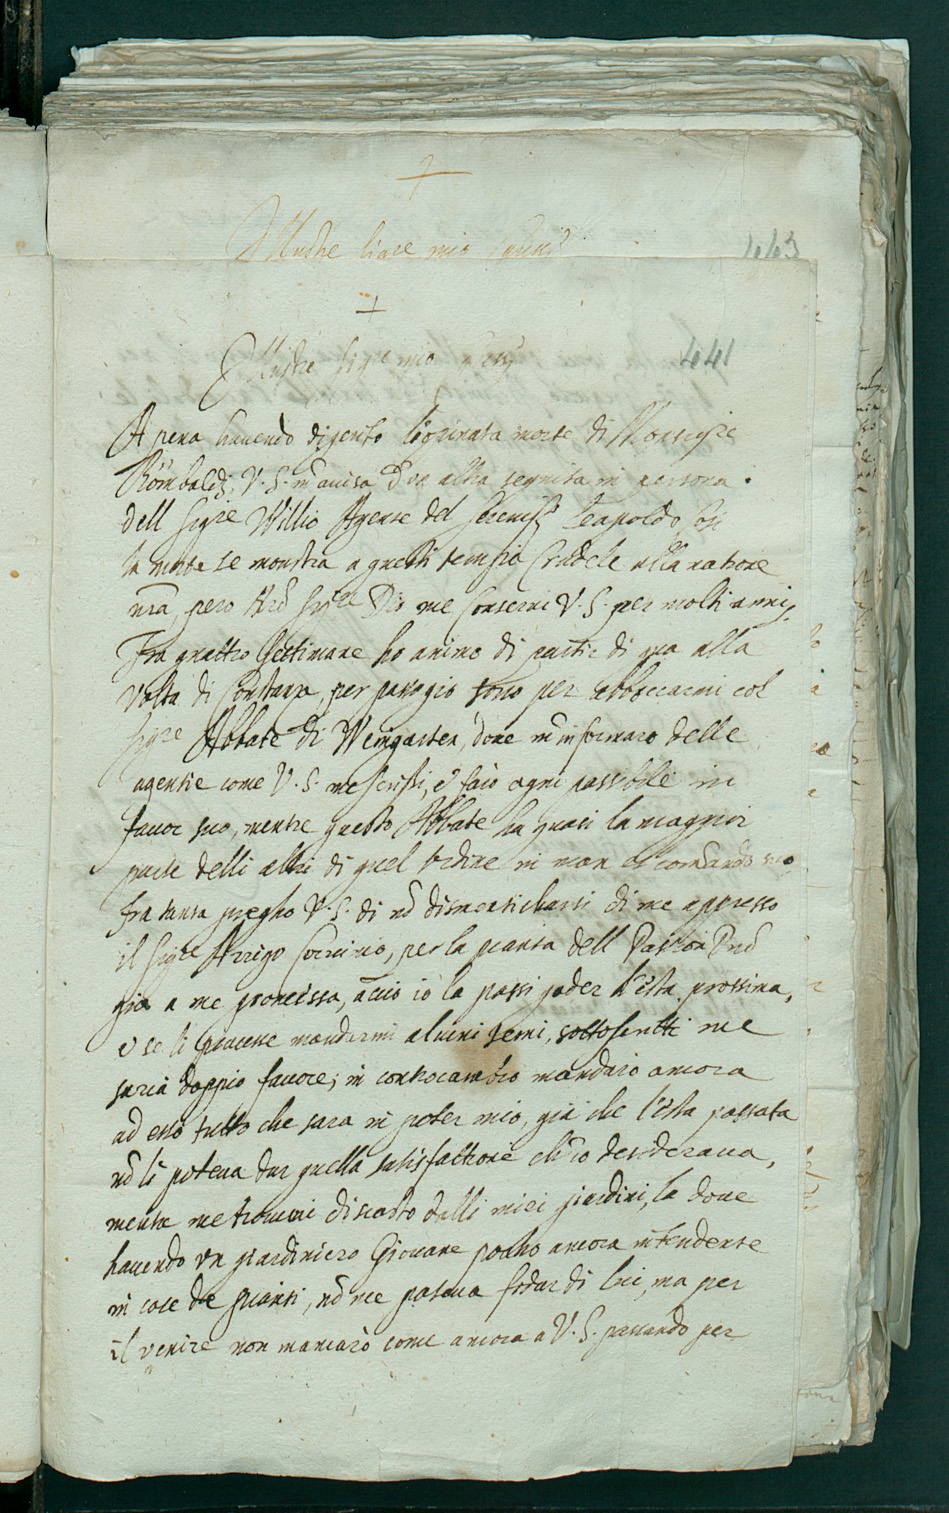 +
Illustre Sigre mio
443
+
Illustre Sigre mio
441
A pena havendo digerito l'opinata morte di Monsigre
Rombaldi, V. S. m'auisa d'un altra seguita in persona
dell Sigre Willio Agente del Sereniss. Leopoldo, cosi
la morte se monstra a questi tempi crudele alla natione
nra, pero Sigre Dio me conserui V. S. per molti anni,
Fra quattro settimane ho animo di partir di qua alla
volta di Constanza, per passegio sono per abboccarmi col
Sigre Abbate di Weingarten, doue m'informaro delle
agentie come V. S. me scrissi, e faro ogni possibile in
fauor suo, mentre questo Abbate ha quasi la maggior
parte delli altri di quel ordine in man et comando suo,
fra tanta pregho V. S. di nō dismenticharsi di me appresso
il Sigre Arrigo Corvino, per la pianta dell
gia a me promessa, accio io la possi goder l'esta prossima,
e se li piacesse mandarmi alcuni semi, sottoscritti me
saria doppio fauore; in controcambio mandaro ancora
ad esso tutto che sara in poter mio, già che l'esta passata
nō li poteua dar quella satisfattione ch'io desideraua,
mentre me trouai discosto dalli miei giardini, la doue
hauendo un giardiniero Giouane pocho ancora intendente
in cose de pianti, nō me poteua fidar di lui, ma per
il venire non mancarò come ancora a V. S. passando per